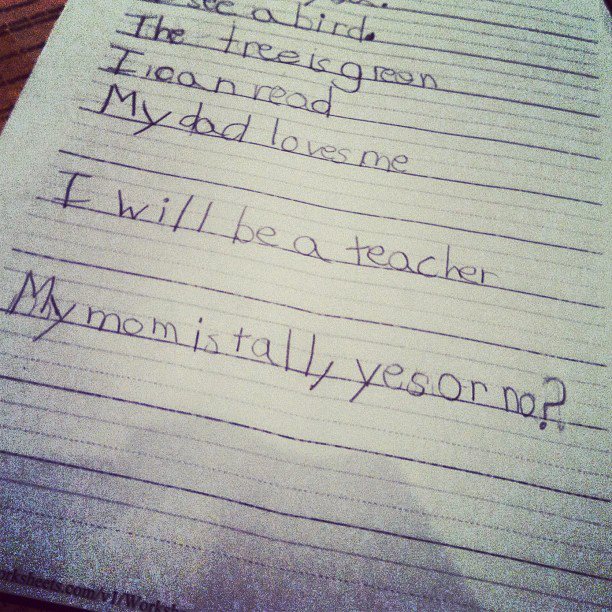 see a bird.
The tree is green
I can read
My dad loves me
I will be a teacher
My mom is tall, yes or no?
orksheets.com/v1/Worksh